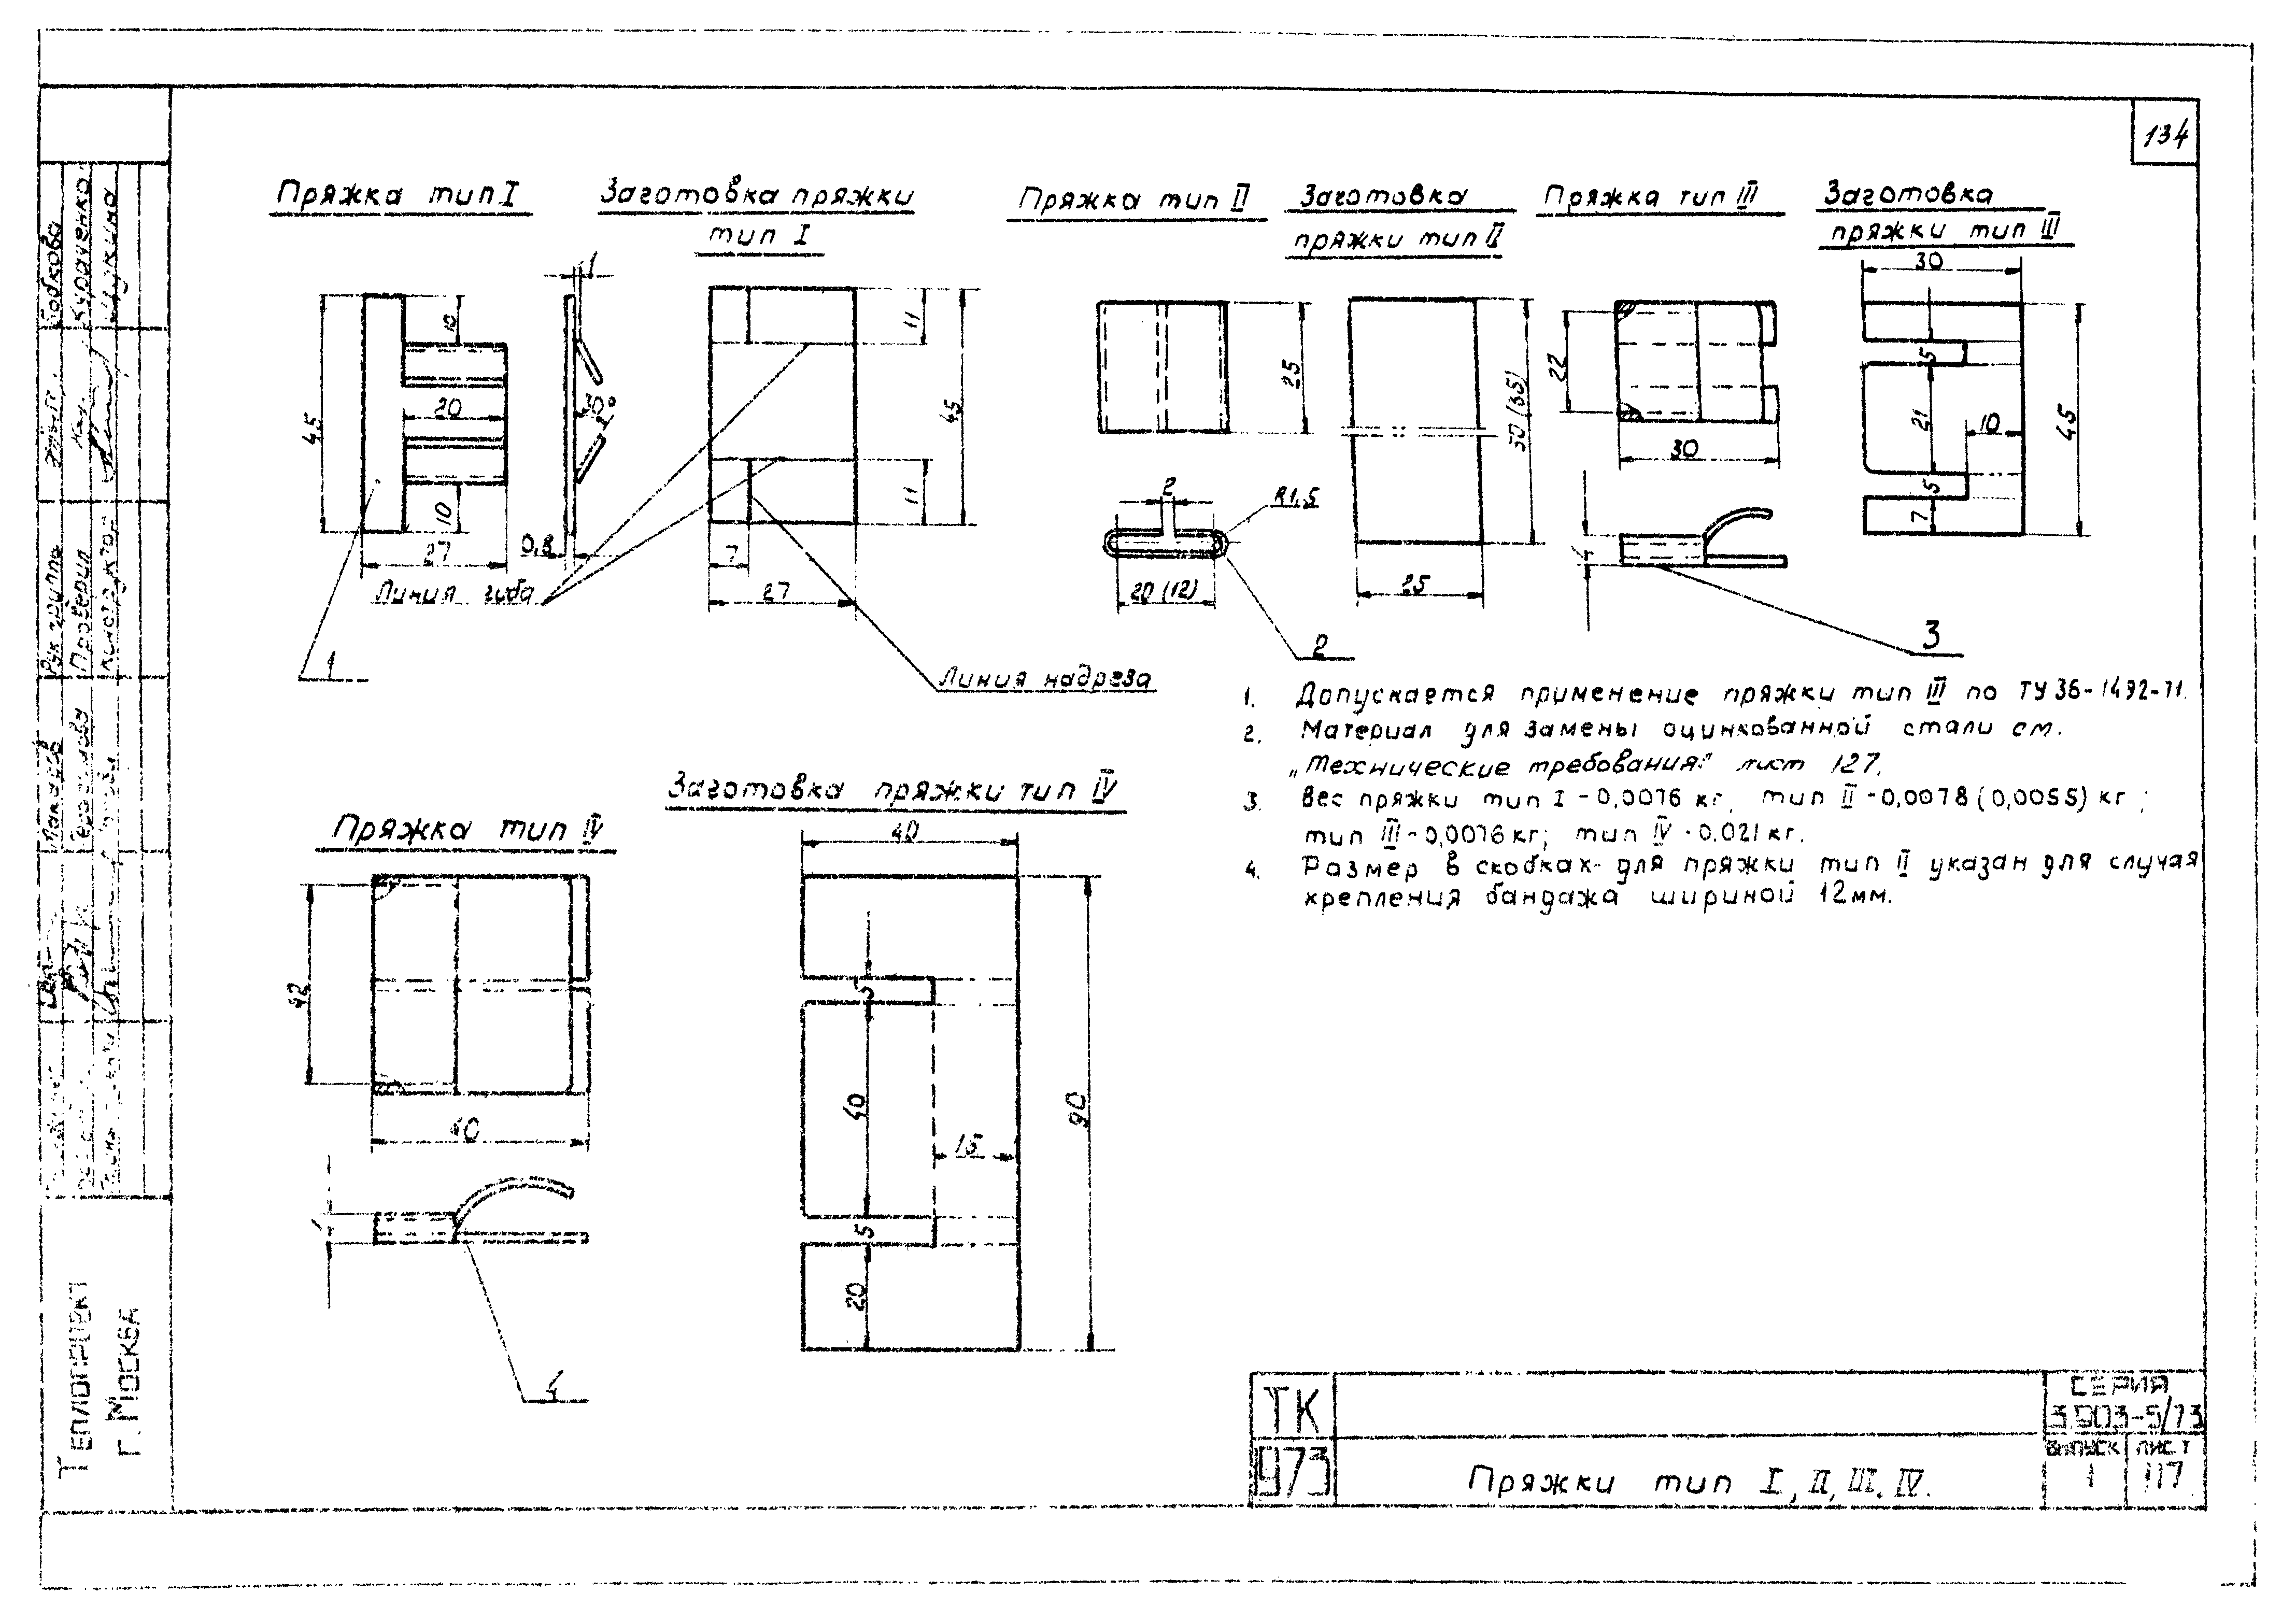 134
Пряжка тип I
Заготовка пряжки
тип I
Пряжка тип II
Заготовка
пряжки тип II
Пряжка тип III
Заготовка
пряжки тип III
45
10
20
10
27
1
30°
0,8
Линия гиба
1
11
45
11
7
27
Линия надреза
25
2
R1,5
20 (12)
2
50 (35)
25
22
30
4
3
30
5
21
10
5
7
45
1. Допускается применение пряжки тип III по ТУ 36-1492-71.
2. Материал для замены оцинкованной стали см.
„Технические требования" лист 127.
3. Вес пряжки тип I - 0,0076 кг, тип II - 0,0078 (0,0055) кг;
тип III - 0,0076 кг; тип IV - 0.021 кг.
4. Размер в скобках- для пряжки тип II указан для случая
крепления бандажа шириной 12мм.
Пряжка тип IV
42
40
4
Заготовка пряжки тип IV
40
5
40
15
5
20
90
Бобкова
Кураченко
Щукина
Рук группы
Проверил
Конструктор
Теплопроект
г. Москва
ТК
973
Пряжки тип I, II, III, IV.
Серия
3 903-5/73
Выпуск
1
Лист
117